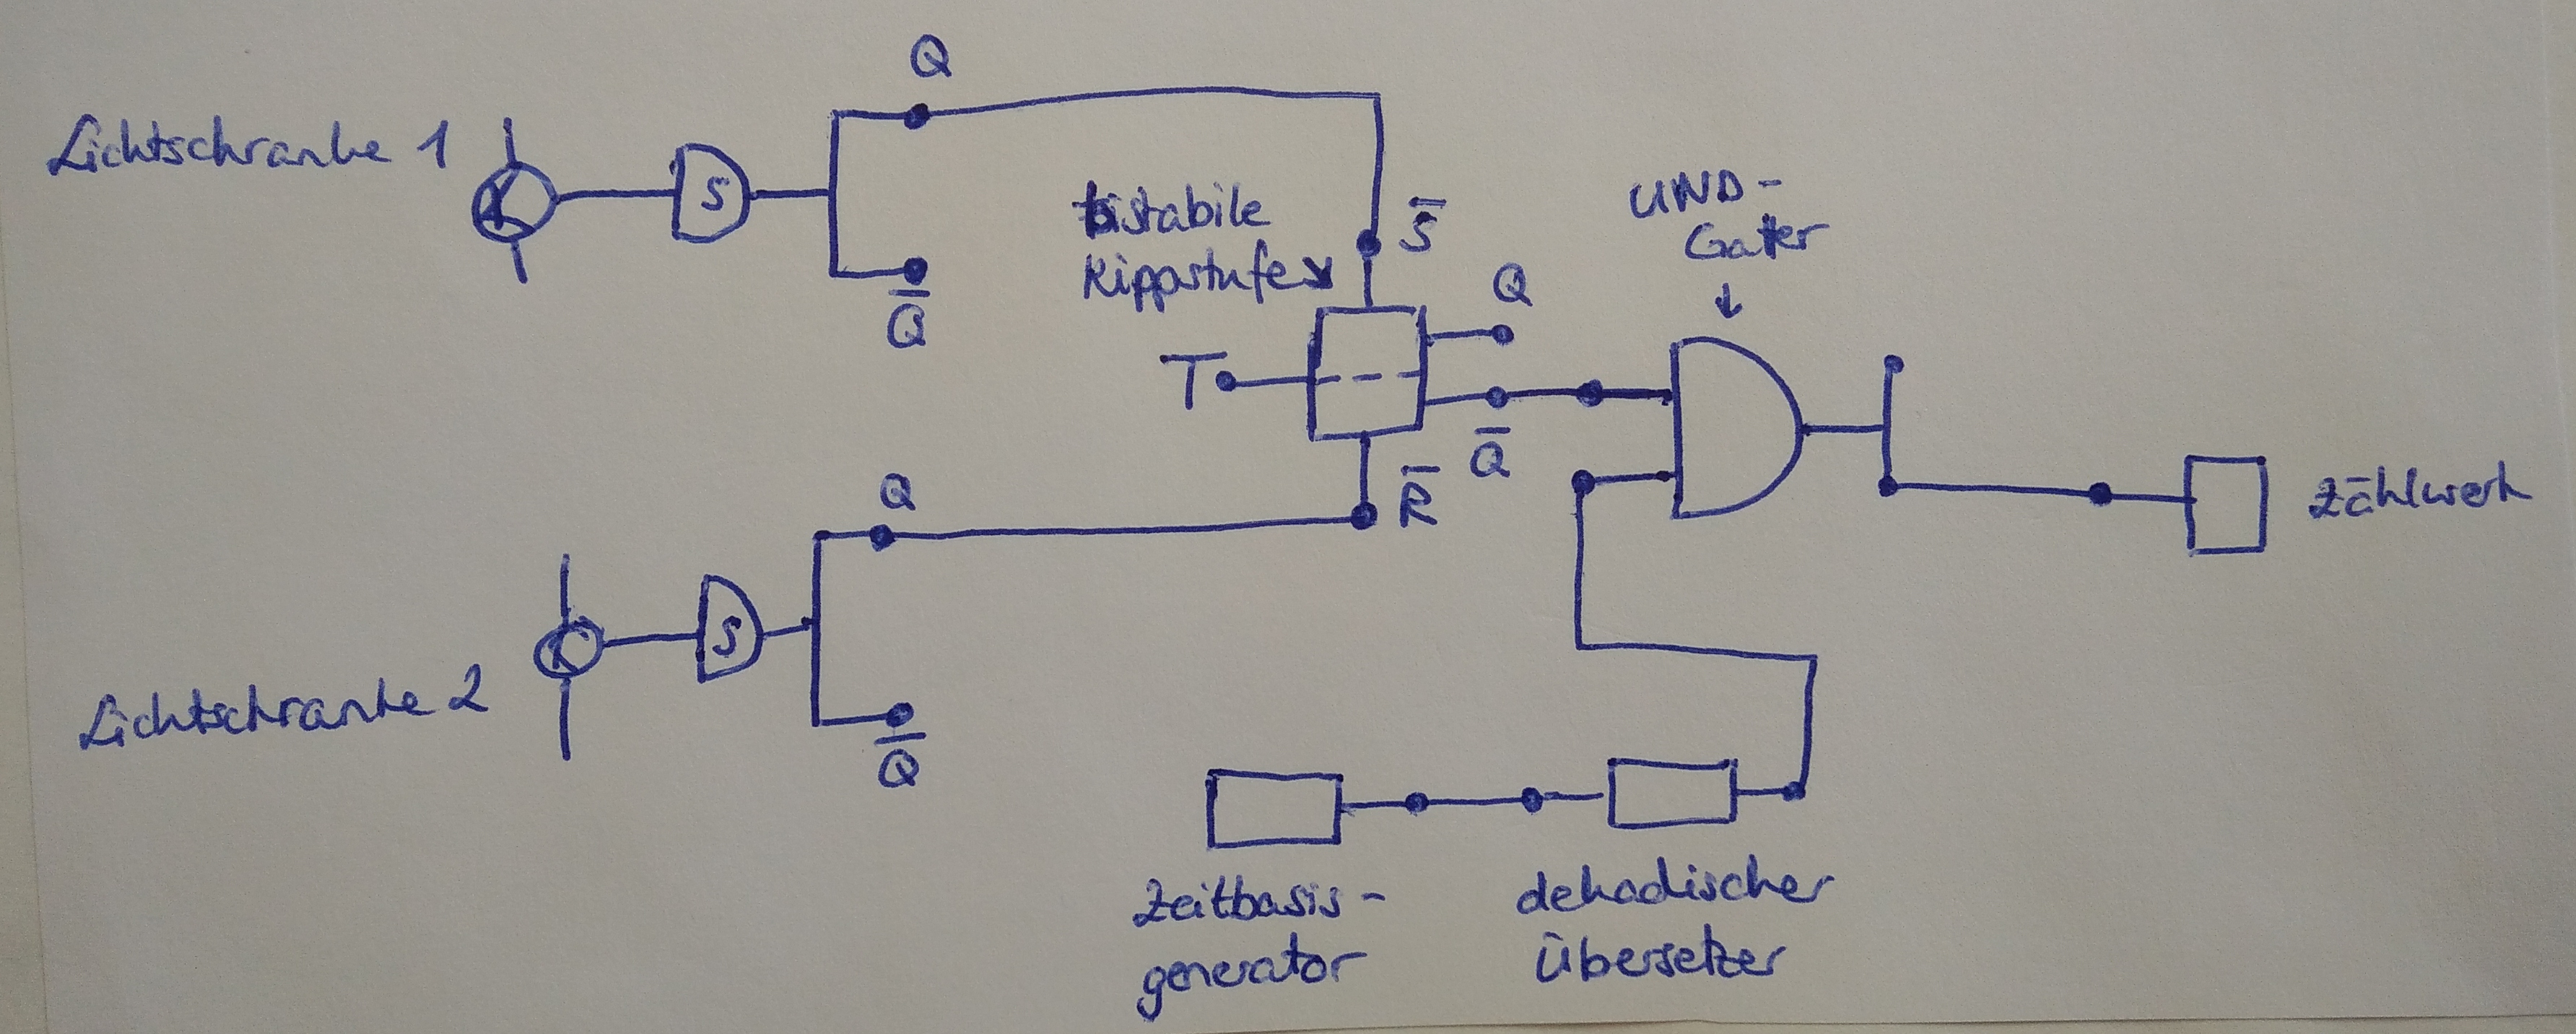 Q
Lichtschranke 1
S
Q̅
bistabile
Kippstufe
S̅
UND-
Gatter
Q
T
Q̅
R̅
Zählwerk
Q
S
Lichtschranke 2
Q̅
Zeitbasis-
generator
dekadischer
Übersetzer